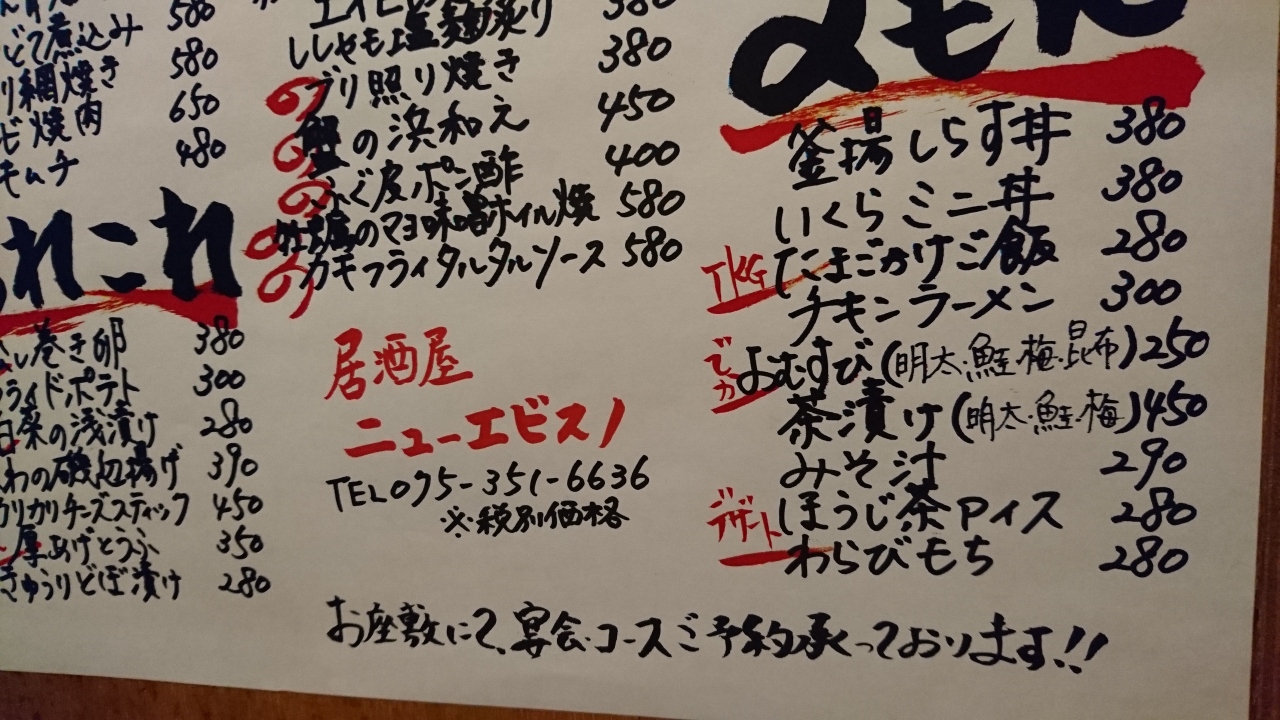 580
どて煮込み 580
網焼き 650
ビ焼肉 480
キムチ
れこれ
巻き卵 380
ライドポテト 300
白菜の浅漬け 280
わの磯辺揚げ 390
カリカリチーズスティック 450
厚あげとうふ 350
きゅうりどぼ漬け 280
380
ししゃも塩麹炙り 380
ブリ照り焼き 450
の浜和え 400
ふぐ皮ポン酢 580
牡蠣のマヨ味噌ホイル焼 580
カキフライタルタルソース
居酒屋
ニューエビスノ
TEL095-351-6636
※税別価格
釜揚しらす丼 380
いくらミニ丼 380
TKG たまごかけご飯 280
チキンラーメン 300
でカ おむすび(明太・鮭・梅・昆布)250
茶漬け(明太・鮭・梅)450
みそ汁 290
デザート ほうじ茶アイス 280
わらびもち 280
お座敷にて、宴会・コースご予約承っております!!